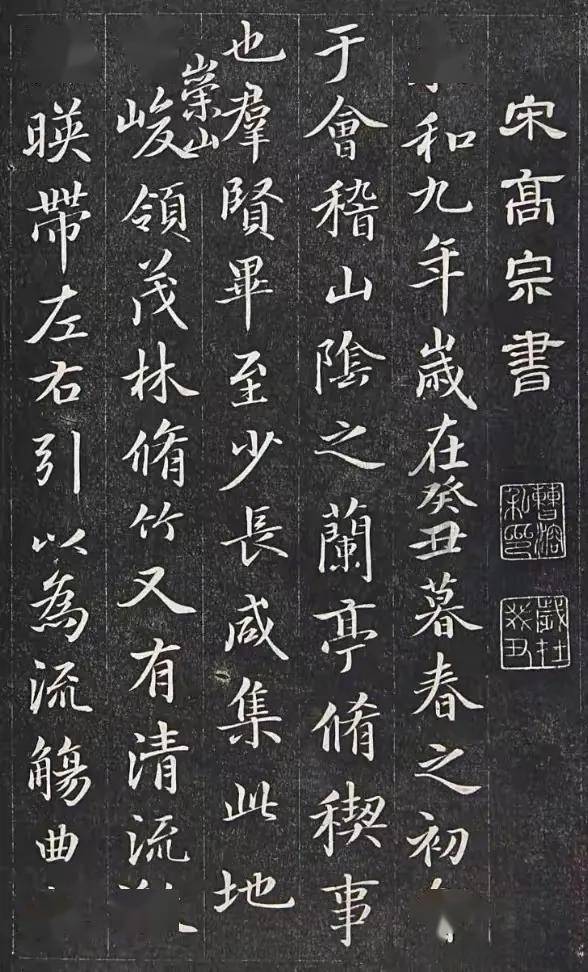 宋高宗書
曹溶私印
和九年歲在癸丑暮春之初
于會稽山陰之蘭亭脩稧事
也羣賢畢至少長咸集此地
崇山
峻領茂林脩竹又有清流
暎帶左右引以為流觴曲